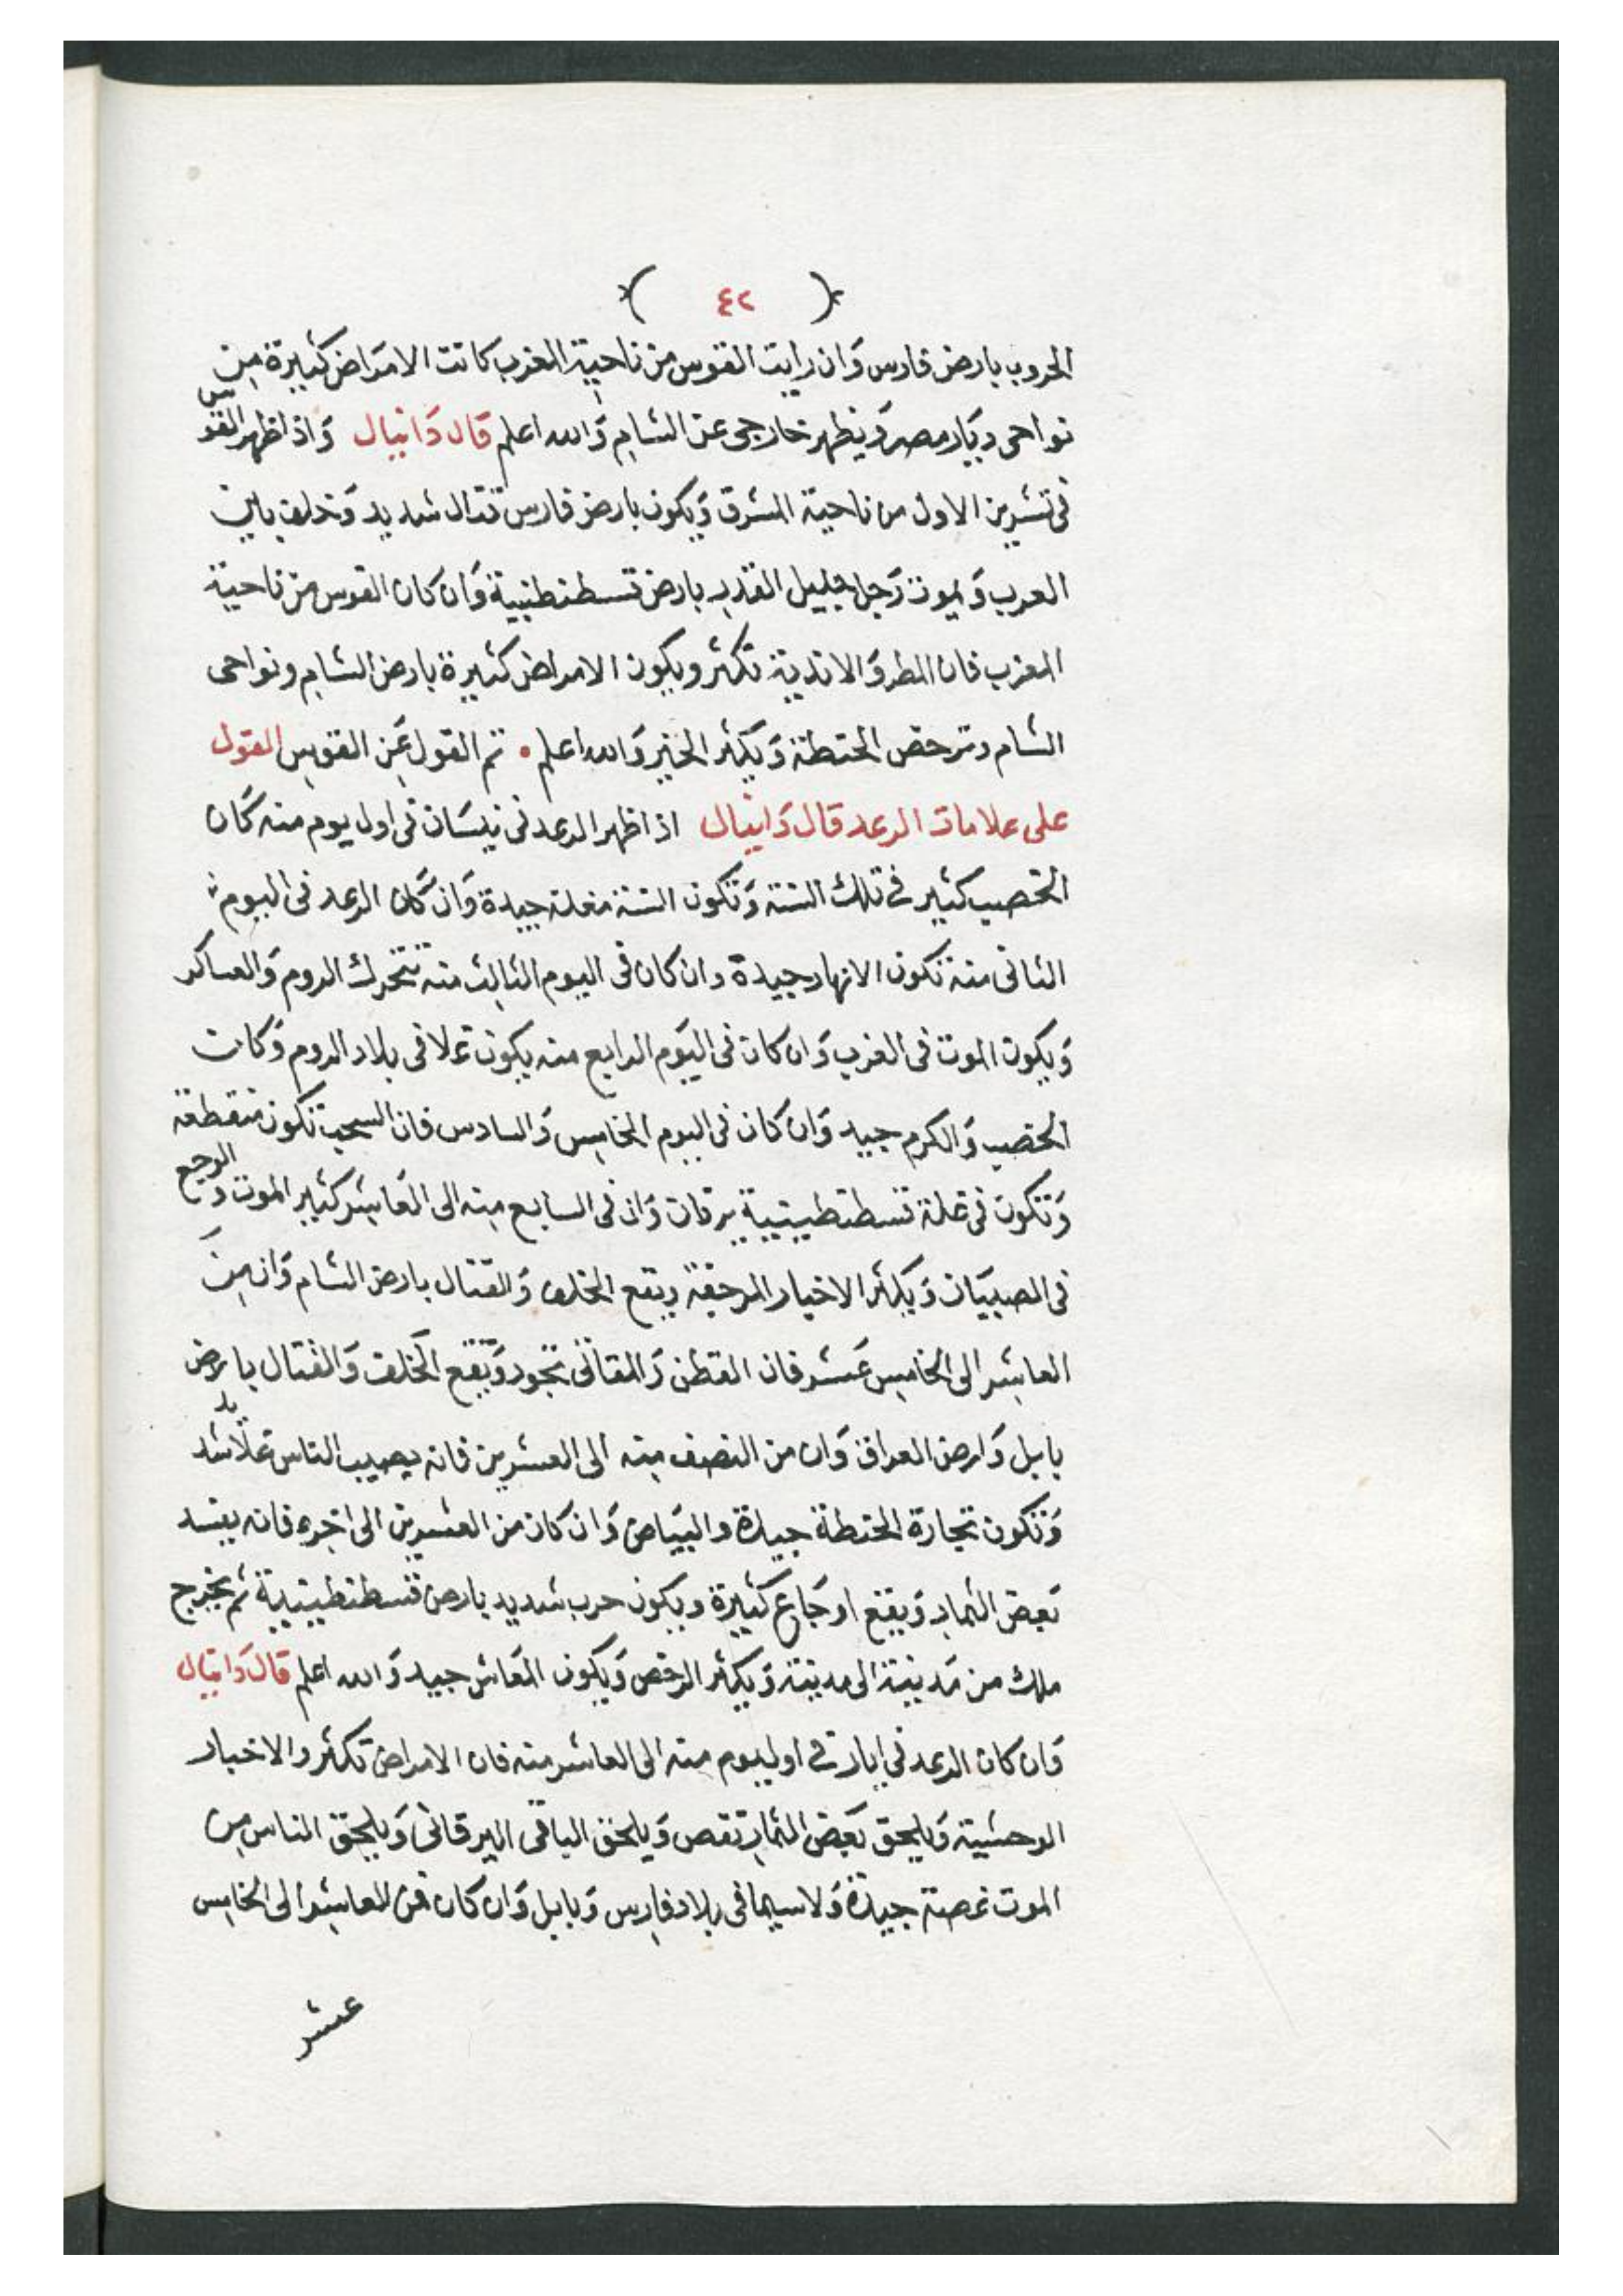 ( ٤٢ )
الحروب بارض فارس وَان رايت القوس من ناحية المغرب كانت الامرَاض كثيرة مِن
نواحى ديَار مصر وَيظهر خارجى عن الشام وَالله اعلم قال دَانيال وَاذا ظهر القوس
فى تشرين الاول من ناحية المشرق وَيكون بارض فارس قتال شديد وَخلف باين
العرب وَيموت رَجل جليل القدر بارض قسطنطنيية وَان كان القوس من ناحية
المغرب فان المطر وَالاندية تكثر ويكون الامراض كثيرة بارض الشام ونواحى
الشام وترخص الحنطة وَيكثر الخير وَالله اعلم • تم القول عَن القوس القول
على علامات الرعد قال دَانيال اذا ظهر الرعد فى نيسَان فى اول يوم منه كان
الخصب كثير فى تلك السنة وَتكون السنة مغلة جيدة وَان كان الرعد فى اليوم
الثانى منه تكون الانهار جيدة وان كان فى اليوم الثالث منه تتحرك الروم وَالعساكر
وَيكون الموت فى الغرب وَان كان فى اليَوم الرابع منه يكون غلا فى بلاد الروم وَكان
الخصب وَالكرم جيد وَان كان فى اليوم الخامس وَالسادس فان السحب تكون منقطعة
وَتكون فى غلة قسطنطينيية يرقان وَان فى السابع منه الى العَاشر كثير الموت وَالوجع
فى الصبيَان وَيكثر الاخبار المرجفة ويقع الخلف وَالقتال بارض الشام وَان مِن
العاشر الى الخامس عَشر فان القطن وَالمقاثى تجود وَيقع الخلف وَالقتال بارض
بابل وَارض العراق وَان من النصف منه الى العشرين فانه يصيب الناس غلَا شديد
وَتكون تجارة الحنطة جيدة والبيَاض وَان كان من العشرين الى اخره فانه يفسد
بَعض الثمار وَيقع اوجَاع كثيرة ويكون حرب شديد بارض قسطنطينيية ثم يخرج
ملك من مَدينة الى مدينة وَيكثر الرخص وَيكون المَعاش جيد وَالله اعلم قال دَانيال
وَان كان الرعد فى ايار فى اول يوم منه الى العاشر منه فان الامراض تكثر والاخبار
الوحشية وَيلحق بَعض الثمار نقص وَيلحق الباقى اليرقانى وَيلحق الناس من
الموت غصة جيدة وَلاسيما فى بلاد فارس وَبابل وَان كان من العاشر الى الخامس
عشر